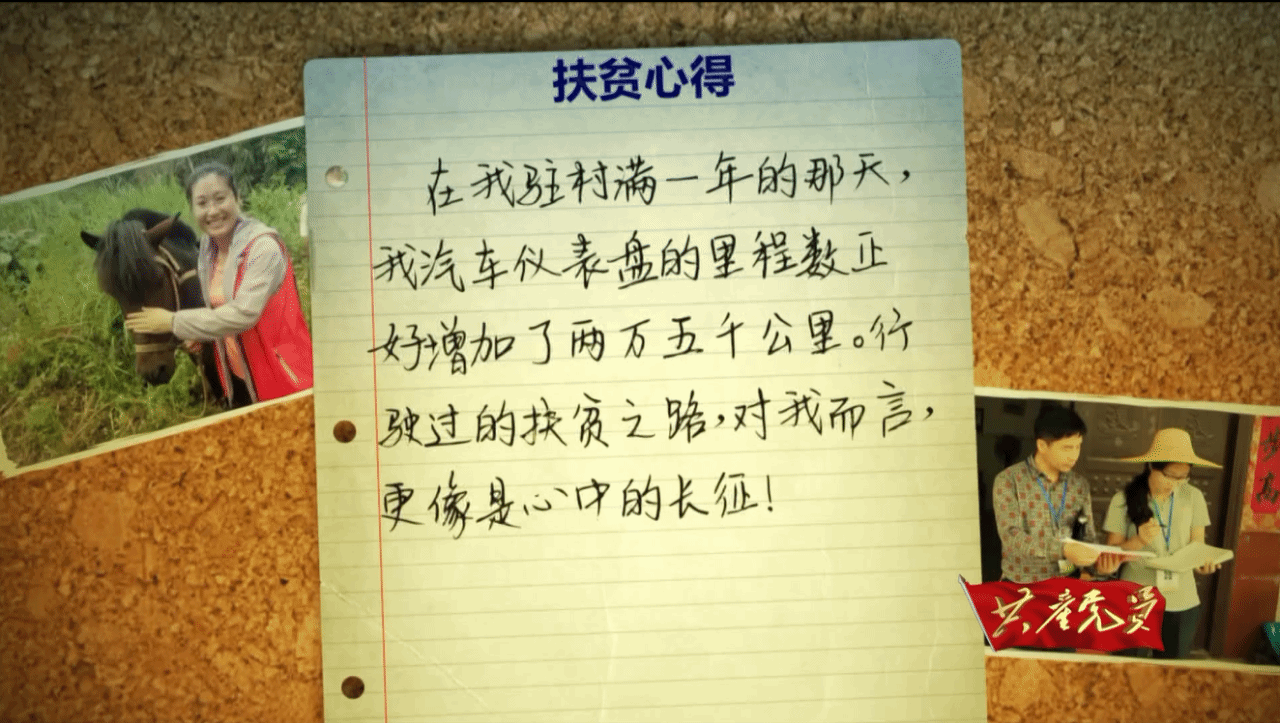 扶贫心得
在我驻村满一年的那天，
我汽车仪表盘的里程数正
好增加了两万五千公里。行
驶过的扶贫之路，对我而言，
更像是心中的长征！
共产党员
高